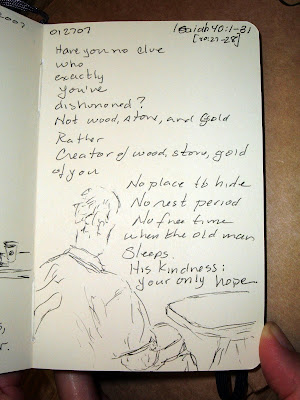 012707
Isaiah 40:1-31
[10:27-28]
Have you no clue
who
exactly
you've
dishonored?
Not wood, stone, and gold
Rather
Creator of wood, stone, gold
of you
No place to hide
No rest period
No free time
when the old man
Sleeps.
His kindness:
your only hope